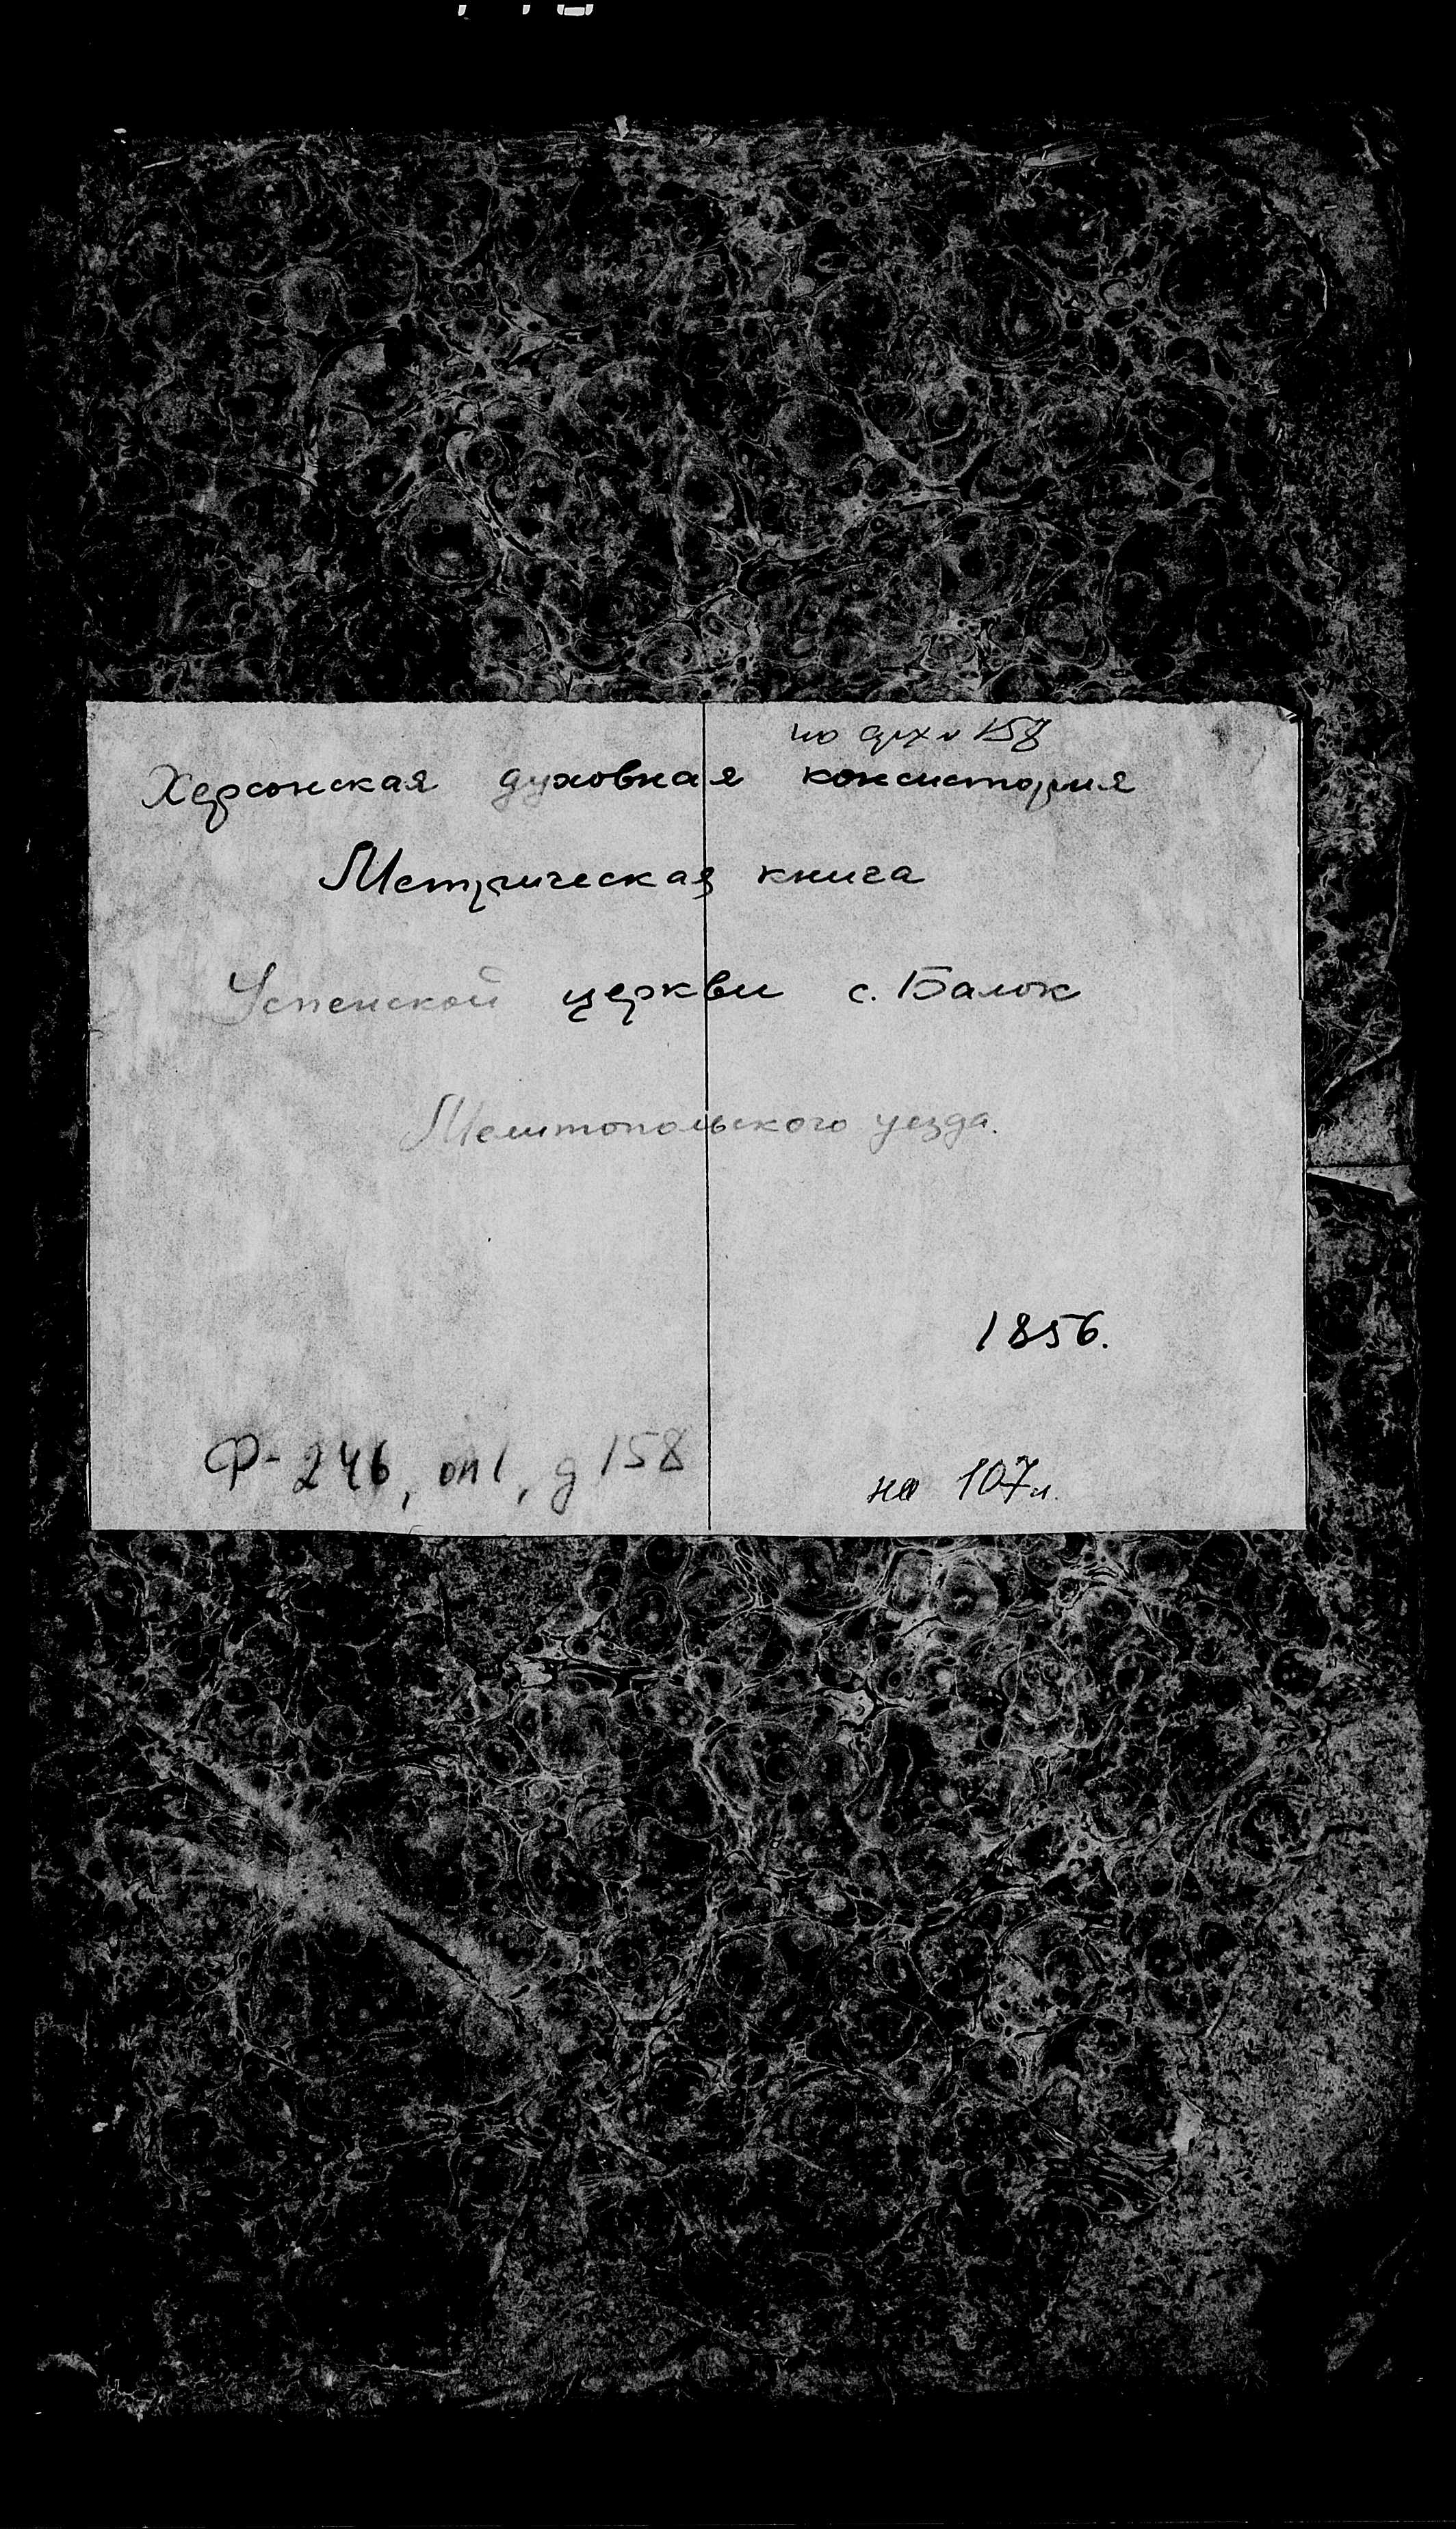 по арх № 158
Херсонская духовная консистория
Метрическая книга
Успенской церкви с. Балок
Мелитопольского уезда.
1856.
Ф-246, оп 1, д 158
на 107 л.